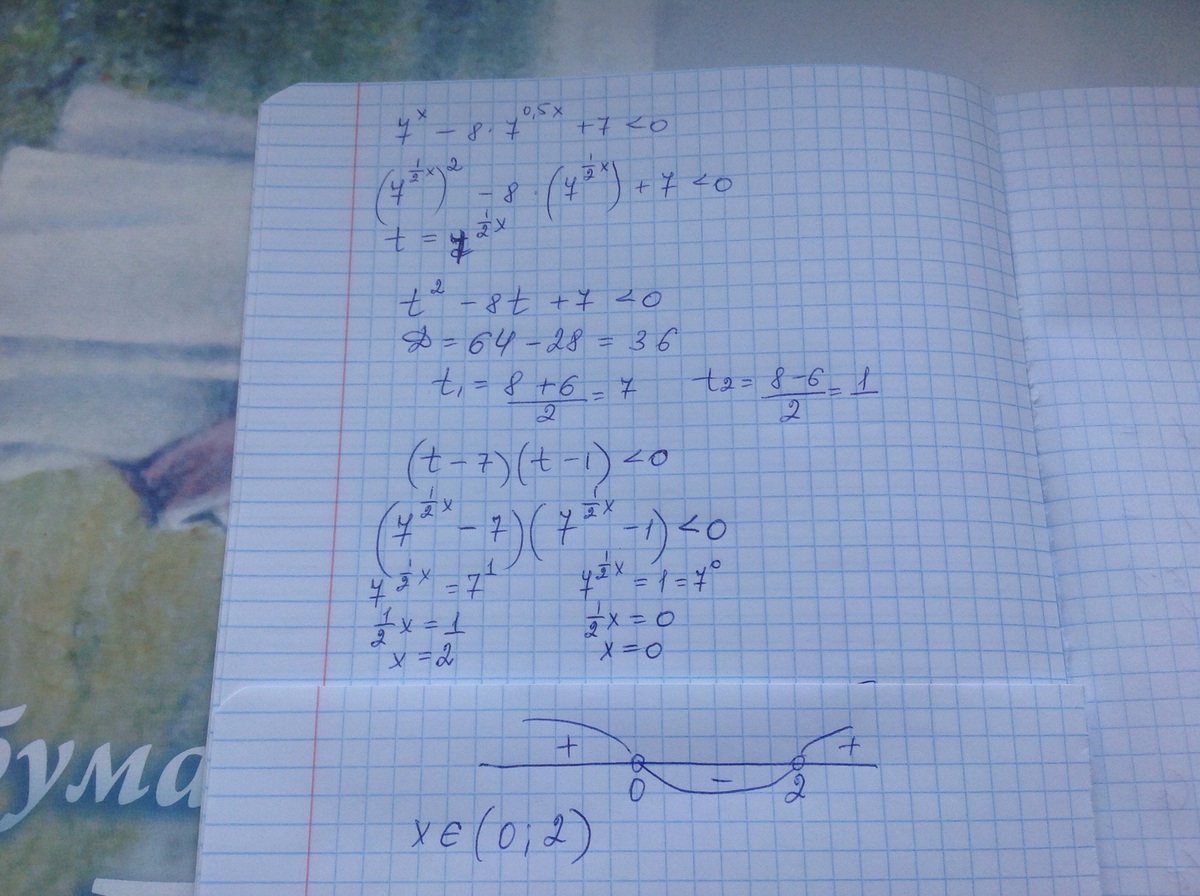 7^x - 8 · 7^{0,5x} + 7 < 0
(7^{\frac{1}{2}x})^2 - 8 · (7^{\frac{1}{2}x}) + 7 < 0
t = 7^{\frac{1}{2}x}
t^2 - 8t + 7 < 0
D = 64 - 28 = 36
t_1 = \frac{8+6}{2} = 7 t_2 = \frac{8-6}{2} = 1
(t - 7)(t - 1) < 0
(7^{\frac{1}{2}x} - 7)(7^{\frac{1}{2}x} - 1) < 0
7^{\frac{1}{2}x} = 7^1 7^{\frac{1}{2}x} = 1 = 7^0
\frac{1}{2}x = 1 \frac{1}{2}x = 0
x = 2 x = 0
+ - +
0 2
x ∈ (0; 2)
бума